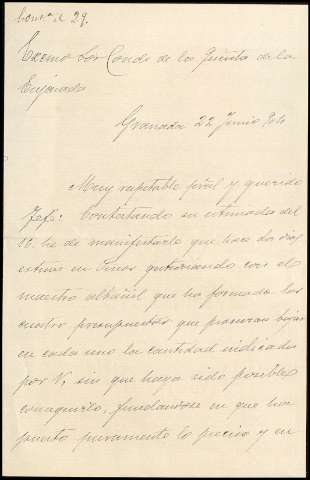 Contda el 29.
Excmo Sor Conde de las Infantas de la
Granada 22 Junio
Muy respetable señor y querido
Jefe: Contestando su estimada del
he de manifestarle que hace dos días
estuve en
maestro albañil que ha formado los
cuatro presupuestos que procuran bajar
en cada uno la cantidad indicada
por V, sin que haya sido posible
conseguirlo, fundándose en que ha
puesto puramente lo preciso y en